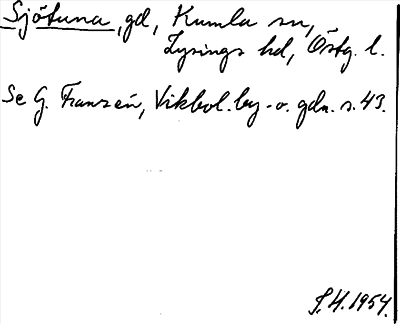 Sjötuna, gd, Kumla sn,
Lysings hd, Östg. l.
Se G. Franzén, Vikbol. by- o. gdn. s. 43.
S.H. 1954.